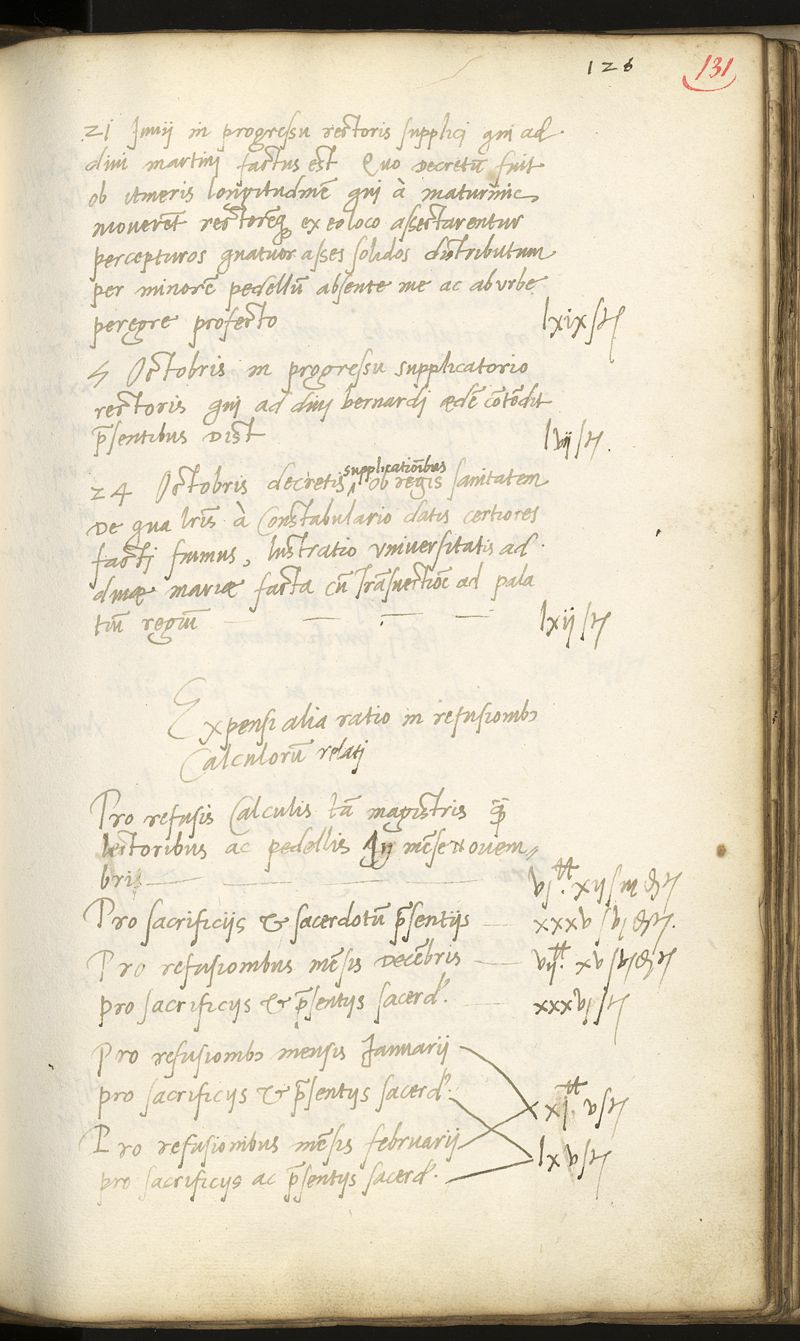 126 131
21 Junij in progressu rectoris supplicj qui ad
divi martinj factus est Quo Decretū fuit
ob itineris longitudinē qui à maturinis
moverēt rectorēq; ex eo loco assectarentur
percepturos quatuor asses solidos distributum
per minorē pedellū absente me ac ab urbe
peregre profecto lxix s tz
5 Octobris in progressu supplicatorio
rectoris qui ad divj bernardj ædē cōtēdit
p̄sentibus Dist lvij s tz.
24 Octobris decretis supplicationibus ob regis sanitatem
De qua lr̄is à Constabulario datis certiores
factj fuimus, lustratio universitatis ad
divæ mariæ facta cū trāsvectiōe ad pala
tiū regiū lxij s tz
Expensi alia ratio in refusionib;
Calculorū relatj
Pro refusis Calculis tā magistris q̄
lectoribus ac pedellis In mēse Novem-
bris vj.tt xij s iij d tz
Pro sacrificijs & sacerdotū p̄sentijs xxxv s vj d tz.
Pro refusionibus mēsis Decēbris vij.tt xv s tz d tz
pro sacrificijs & p̄sentijs sacerd. xxxvj s tz
Pro refusionib; mensis Januarij
pro sacrificijs & p̄sentijs sacerd. xxj tt v s tz
Pro refusionibus mēsis februarij lxv s tz
pro sacrificijs ac p̄sentijs sacerd.